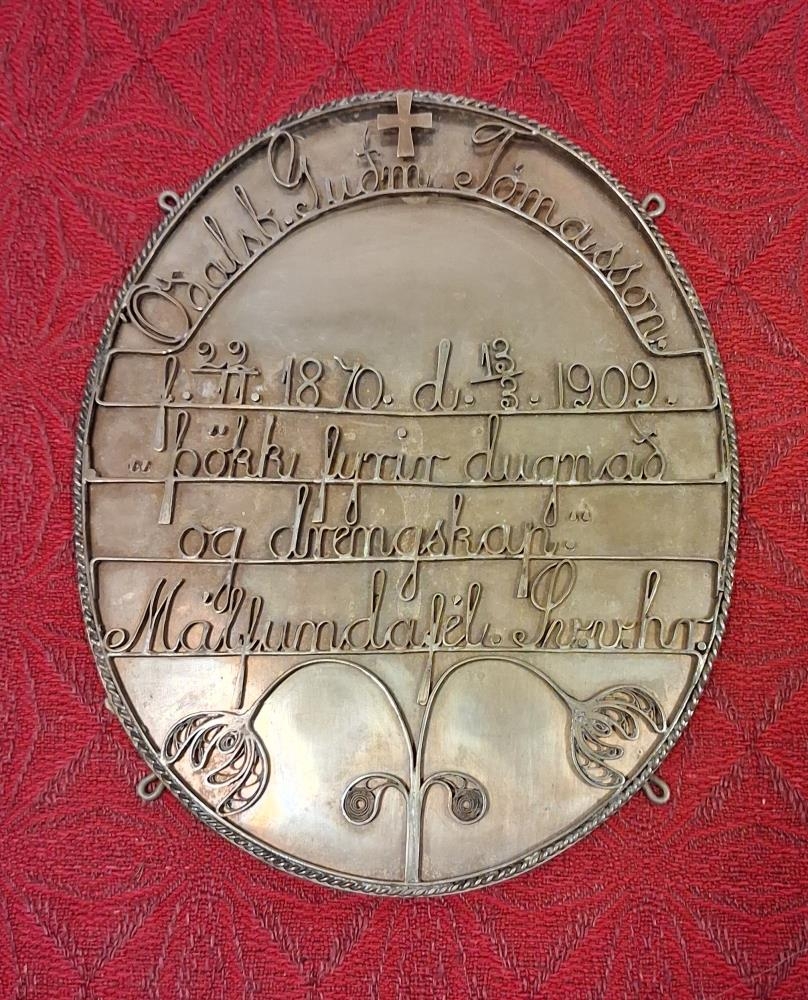 Óðalsb. Guðm. Tómasson.
f. 22/11. 1870. d. 13/3. 1909.
„Þökk fyrir dugnað
og drengskap."
Málfundafél.